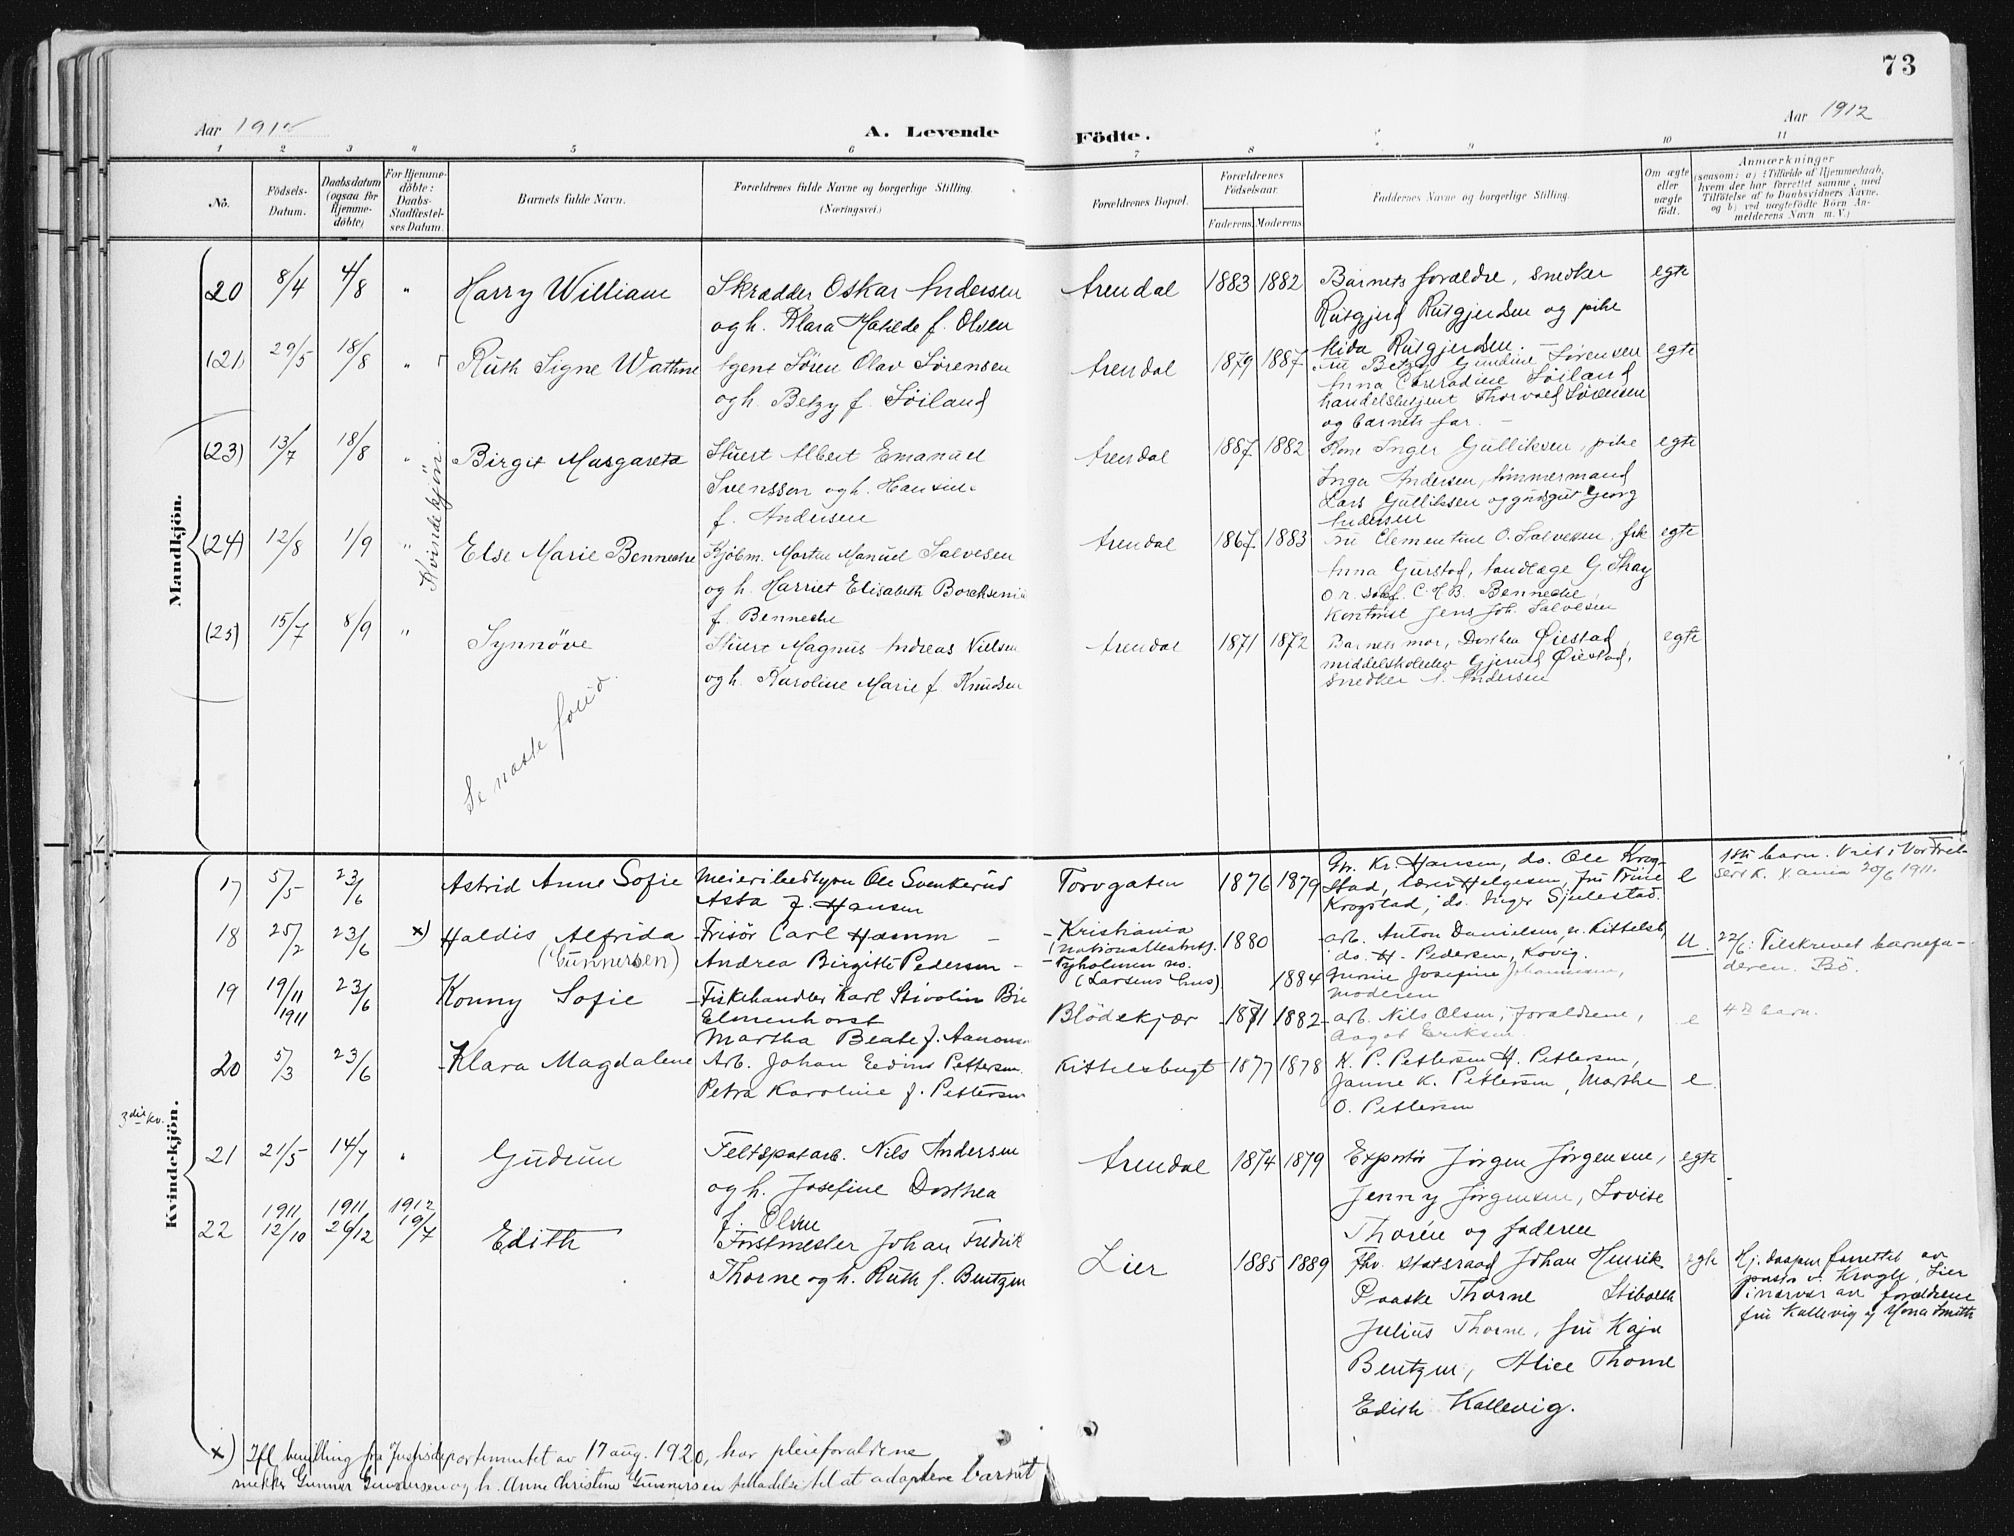 73
Aar 1912
A. Levende
Födte.
Aar 1912
1 2 3 4 5 6 7 8 9 10 11
No.
Födsels-
Datum.
Daabsdatum
(ogsaa for
Hjemme-
döbte)
For Hjemme-
döbte:
Daabs-
Stadfæstel-
ses Datum.
Barnets fulde Navn.
Forældrenes fulde Navne og borgerlige Stilling.
(Næringsvei.)
Forældrenes Bopæl.
Forældrenes
Födselsaar.
Faderens Moderens
Faddernes Navne og borgerlige Stilling.
Om ægte
eller
uægte
födt.
Anmærkninger
(saasom: a) i Tilfælde af Hjemmedaab,
hvem der har forrettet samme, med
Tilföielse af to Daabsvidners Navne,
og b) ved uægtefödte Börn An-
melderens Navn m. V.)
Mandkjön.
Kvindekjön.
20 8/4 4/8 " Harry William
Skrædder Oskar Andersen
og h. Klara Matilde f. Olsen
Arendal 1883 1882
Barnets forældre, snedker
Rusgjerd Rusgjerdsen og pike
Alida Rusgjerdsen.
egte
(21) 29/5 18/8 " Ruth Signe Wathne
Agent Sören Olav Sørensen
og h. Betzy f. Søiland
Arendal 1879 1887
Fru Betzy Gundine Sørensen
Anna Conradine Søiland
handelsbetjent Thorvald Sørensen
og barnets far.
egte
(23) 13/7 18/8 " Birgit Margareta
Stuert Albert Emanuel
Svensson og h. Hansine
f. Andersen
Arendal 1887 1882
Kone Inger Gulliksen, pike
Inga Andersen, tømmermand
Lars Gulliksen og gaardsgut Georg
Andersen
egte
(24) 12/8 1/9 " Else Marie Benneche
Kjöbm. Morten Manuel Salvesen
og h. Harriet Elisabeth
f. Benneche
Arendal 1867 1883
Fru Clementine O. Salvesen, frk
Anna Gurstad, tandlæge G. Skay
o.r. sakf. C. H. B. Benneche,
kontorist Jens Joh. Salvesen
egte
(25) 15/7 8/9 " Synnöve
Stuert Magnus Andreas Nielsen
og h. Karoline Marie f. Knudsen
Arendal 1871 1872
Barnets mor, Dorthea Øiestad,
middelskoleelev Gjerulf Øiestad,
snedker A. Andersen
egte
Se næste folio.
Kvindekjön.
17 5/5 23/6 Astrid Anne Sofie
Meieribestyrer Ole Svenkerud
Asta f. Hansen
Torvgaten 1876 1879
Gr. Kr. Hansen, do. Ole Krog-
stad, lærer Helgesen, fru Trine
Krogstad, do. Inger Sjulestad.
e
1ste barn. Viet i Vor Frel-
sers K. Xania 20/6 1911.
18 25/2 23/6 x) Haldis Alfrida
(Gunnersen)
Frisör Carl Hamm
Andrea Birgitte Pedersen
Kristiania
(nationaltheatret).
Tyholmen no.
(Larsens Enus)
1880
1884
arb. Anton Danielsen, n. Kittelsb,
do. H. Pedersen, Kovig.
Gurine Josefine Johannesen,
Moderen
U.
22/6: Tilskrevet barnefa-
deren. Bö.
19 19/11 1911 23/6 Konny Sofie
Fiskehandler Karl Stivolin Bie
Elmenhorst
Martha Beate f. Aanons
Blödekjær 1881 1882
arb. Nils Olsen, Forældrene,
Aagot Eriksen.
e
4de barn.
20 5/3 23/6 Klara Magdalene
Arb. Johan Edvins Pettersen
Petra Karoline f. Pettersen
Kittelsbugt 1877 1878
K. P. Pettersen, H. Pettersen,
Janne K. Pettersen, Marthe
O. Pettersen
e.
3die kv.
21 21/5 14/7 " Gudrun
Feltspatarb. Nils Andersen
og h. Josefine Dorthea
f. Olsen
Arendal 1874 1879
Exportör Jörgen Jörgensen,
Jenny Jörgensen, Lovise
Thorén og faderen
egte
22 1911 12/10 1911 26/12 1912 19/7 Edith
Forstmester Johan Fredrik
Thorne og h. Ruth f. Bentzen
Lier 1885 1889
Fhv. statsraad Johan Henrik
Paaske Thorne Stibolth
Julius Thorne, fru Kaja
Bentzen, Alice Thorne
Edith Kallevig.
egte
Hj. daapen forrettet av
pastor v. Krogh, Lier
i nærvær av forældrene
fru Kallevig og Mona Smith
x) Ifl. bevilling fra Justisdepartementet av 17 aug. 1920, har pleieforældrene
snekker Gunner Gunnersen og h. Anne Christine Gunnersen tilladelse til at adoptere barnet